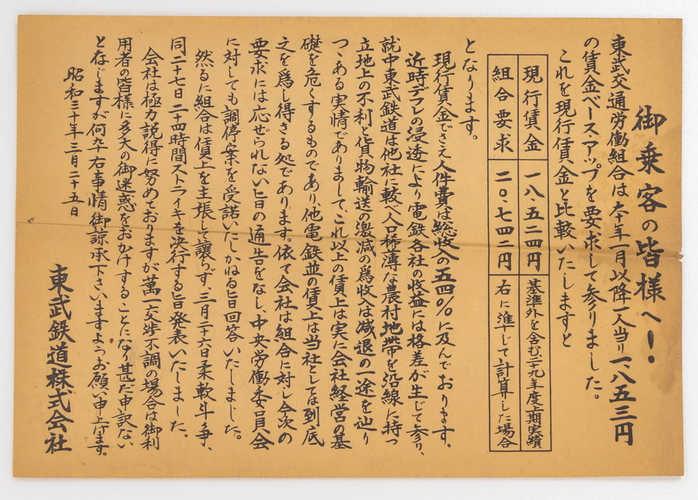 御乗客の皆様へ!
東武交通労働組合は三十年一月以降一人当り一八五三円
の賃金ベースアップを要求して参りました。
これを現行賃金と比較いたしますと
現行賃金 一八、五二四円 基準外を含む二九年度上期実績
組合要求 二〇、七四二円 右に準じて計算した場合
となります。
現行賃金でさえ人件費は総収入の五四%に及んでおります。
近時デフレの浸透により電鉄各社の収益には格差が生じて参り、
就中東武鉄道は他社に較べ人口極薄な農村地帯を沿線に持つ
立地上の不利と貨物輸送の激減の為収入は減退の一途を辿り
つゝある実情でありまして、これ以上の賃上は実に会社経営の基
礎を危くするものであり、他電鉄並の賃上は当社としては到底
之を為し得ざる処であります。依て会社は組合に対し今次の
要求には応ぜられない旨の通告をなし、中央労働委員会
に対しても調停案を受諾いたしかねる旨回答いたしました。
然るに組合は賃上を主張して譲らず、三月二十六日柔軟斗争、
同二十七日二十四時間ストライキを決行する旨発表いたしました。
会社は極力説得に努めておりますが萬一交渉不調の場合は御利
用者の皆様に多大の御迷惑をおかけすることになり甚だ申訳ない
と存じますが何卒右事情御諒承下さいますようお願い申上げます。
昭和三十年三月二十五日
東武鉄道株式会社